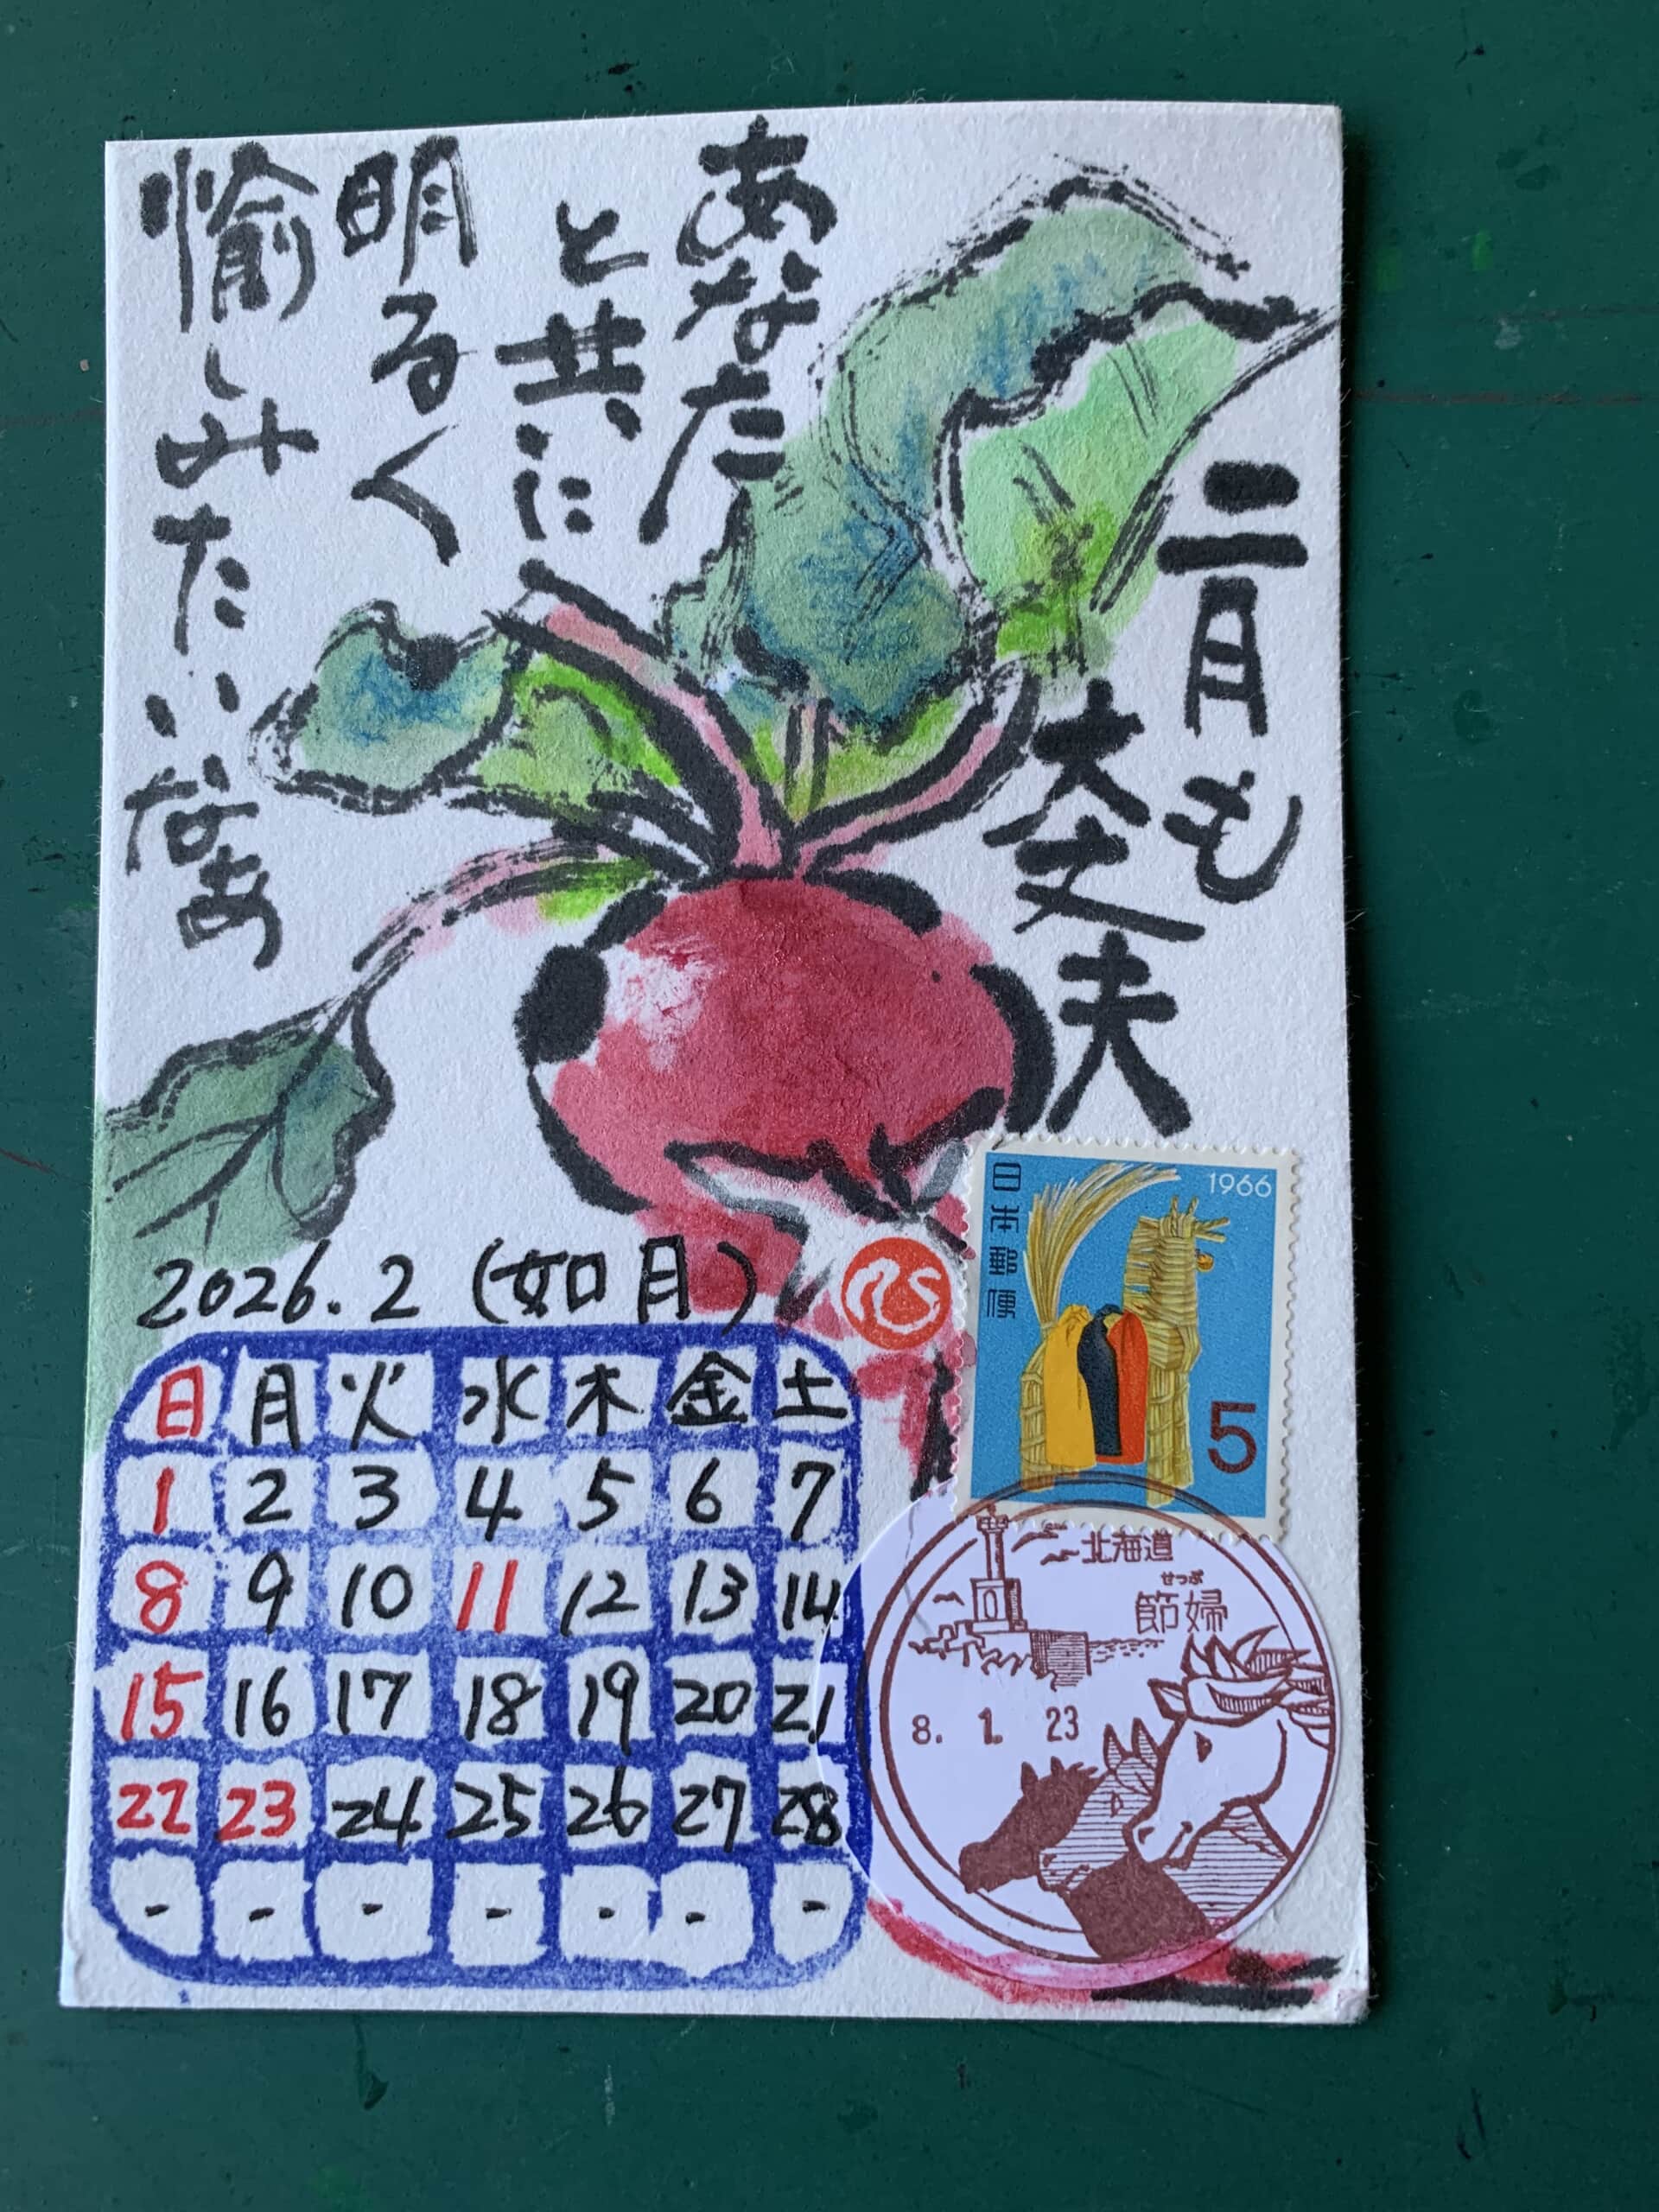 二月も
大丈夫
あなた
と共に
明るく
愉しみたいなあ
2026.2（如月）
日 月 火 水 木 金 土
1 2 3 4 5 6 7
8 9 10 11 12 13 14
15 16 17 18 19 20 21
22 23 24 25 26 27 28
- - - - - - -
日本郵便
1966
5
北海道
せっぷ
節婦
8. 1. 23